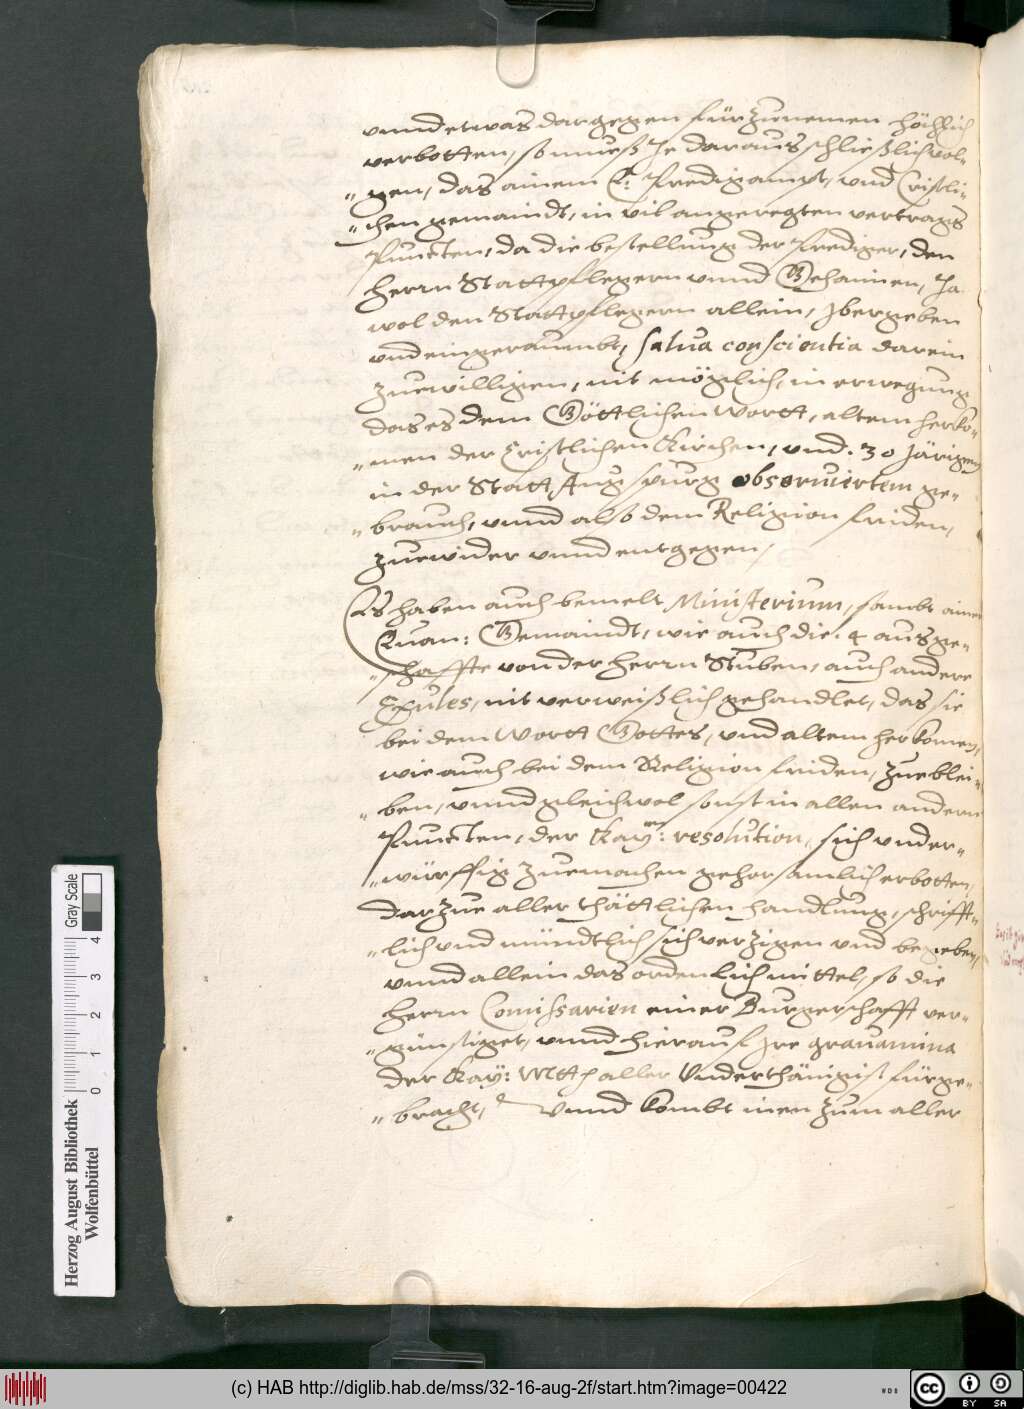 vnnd etwas dargegen fürzunemen höchlich
verbotten, so mueß Je daraus schließlich vol-
"gen, das ainem E: Predigampt, vnd Cristli-
"chen gemaindt, in vil angeregten vertrags
Puncten, da die bestellung der Prediger, den
Herrn Stattpflegern vnnd Gehaimen, Ja
wol den Stattpflegern allein, Jbergeben
vnd eingeraumbt, salua conscientia darein
zuewilligen, nit möglich, in erwegung
das es dem Göttlichen Wortt, altem herko-
"men der Cristlichen Kirchen, vnd .30 Järigem
in der Statt Augspurg obseruiertem ge-
"brauch, vnnd also dem Religion friden,
zuewider vnnd entgegen,
Es haben auch bemelt Ministerium, sambt ainer
Euan: Gemaindt, wie auch die .4 ausge-
"schaffte von der Herrn Stuben, auch andere
Exules, nit verweißlich gehandlet, das sie
bei dem Wortt Gottes, vnd altem herkomen,
wie auch bei dem Religion friden, zue blei-
"ben, vnnd gleichwol sonst in allen andern
Puncten, der Kay: resolution, sich vnder-
"würffig zuemachen gehorsamlich erbotten,
Darzue aller thättlichen handlung, schrifft-
"lich vnd mündtlich sich verzigen vnd begeben,
vnnd allein das ordenlich mittel, so die
Herrn Comissarien einer Burgerschafft ver-
"günstiget, vnnd hierauf Jre grauamina
der Kay: Mtt aller Vnderthänigist fürge-
"bracht, vnnd kombt inen zum aller
Gray Scale
0 1 2 3 4
Herzog August Bibliothek
Wolfenbüttel
(c) HAB http://diglib.hab.de/mss/32-16-aug-2f/start.htm?image=00422
WDB
cc BY SA